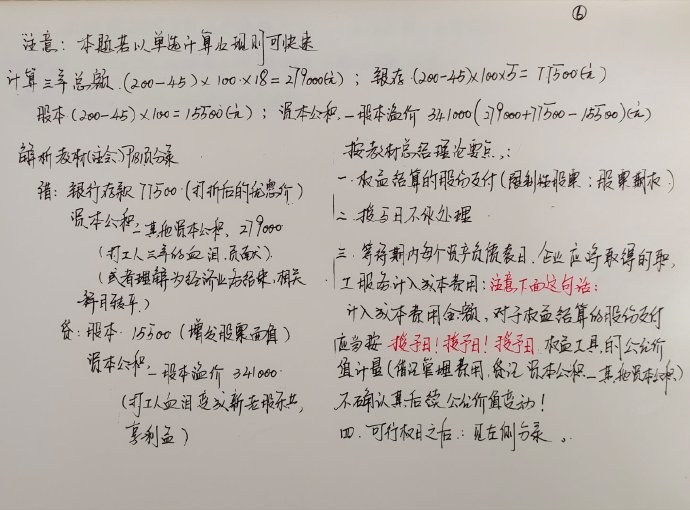 ⑥
注意：本题若以单选计算出现则可快速
计算三年总额 (200-45)×100×18=279000(元)；银存 (200-45)×100×5=77500(元)
股本 (200-45)×100=15500(元)；资本公积-股本溢价 341000(279000+77500-15500)(元)
解析教材(注会)P181页分录
借：银行存款 77500 (打折后的优惠价)
资本公积-其他资本公积. 279000
(打工人三年的血泪.贡献)
(或者理解为经济业务结束，相关
科目转平)
贷：股本. 15500 (增发股票面值)
资本公积-股本溢价 341000
(打工人血泪变成新老股东共
享利益)
按教材总结理论要点：
一.权益结算的股份支付(限制性股票；股票期权)
二.授予日不做处理
三.等待期内每个资产负债表日.企业应将取得的职
工服务计入成本费用：注意下面这句话：
计入成本费用金额，对于权益结算的股份支付
应当按授予日！授予日！授予日.权益工具的公允价
值计量(借记管理费用.贷记资本公积-其他资本公积)
不确认其后续公允价值变动！
四.可行权日之后：见左侧分录。